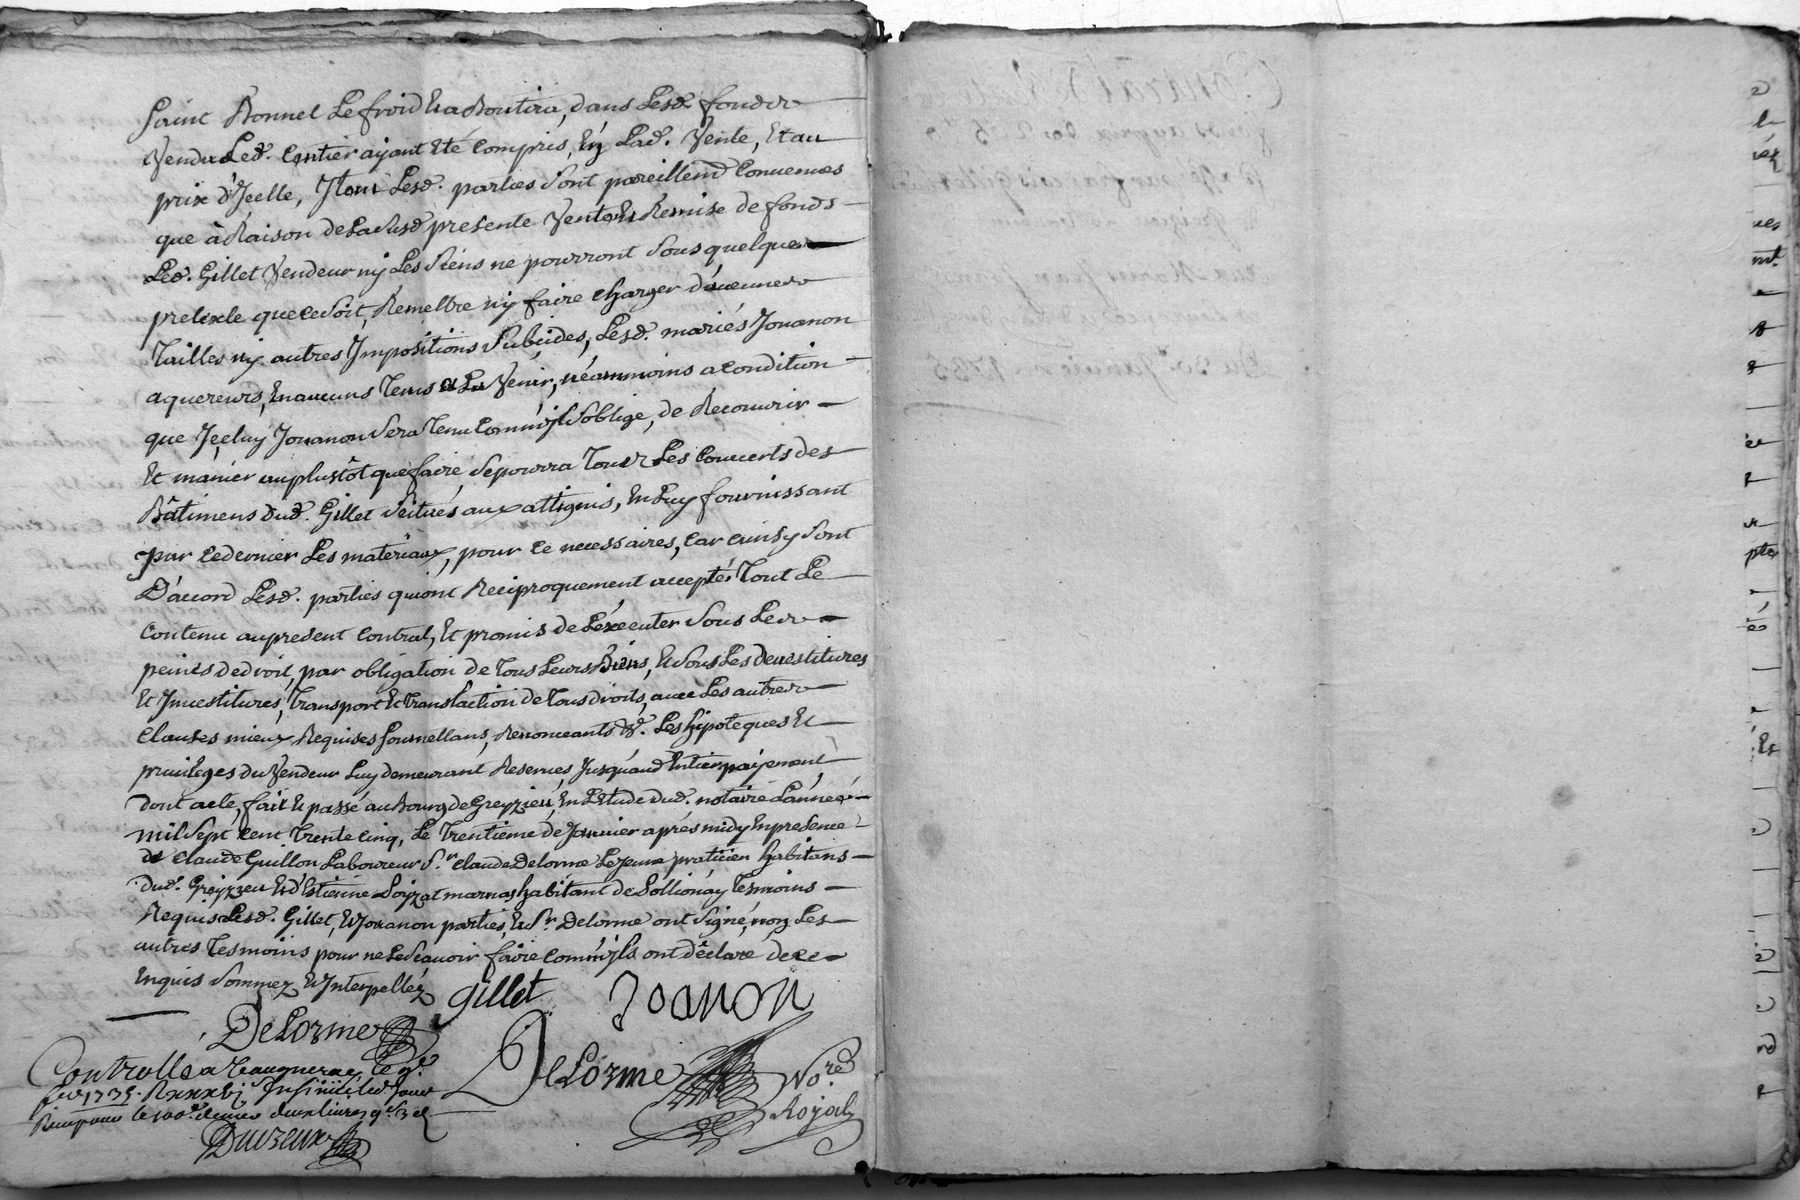 Saint Bonnet Le froid et aboutira, dans Lesd. fonds
Vendu Led. Centier ayant été Compris, En Lad. Vente, Et au
prix d'Jcelle, Item Lesd. parties sont pareillemt Convenues
que à Raison de La susd presente Vente et Remise de fonds
Led. Gillet Vendeur ny Les siens ne pourront sous quelque
pretexte que ce soit, Remettre ny faire charger d'aucunes
Tailles ny autres Jmpositions subcides, Lesd. mariés Jouanon
aquereurs, En aucuns Tems a La Venir, néanmoins a Condition
que Jceluy Jouanon sera Tenu Comm'jl s'oblige, de Recouvrir
Et manier au plustôt que faire se pourra Tous Les Couverts des
Bâtimens dud. Gillet scitués aux attignis, En Luy fournissant
par ce dernier Les materiaux, pour ce necessaires, Car ainsy sont
D'accord Lesd. parties qui ont Reciproquement accepté Tout Le
Contenu au present Contrat, Et promis de L'éxecuter sous Les
peines de droit, par obligation de Tous Leurs Biens, Et sous Les devestitures
Et Jnvestitures, Transport Et Translaction de Tous droits, avec Les autres
Clauses mieux Requises , Renonceants &. Les hipoteques Et
privilèges du Vendeur Luy demeurant Reservés Jusqu'aud Entier paÿement
dont acte, fait Et passé au Bourg de Greyzieu, En L'Etude dud. notaire L'année
mil sept cent Trente cinq, Le Trentieme de Janvier après midy En presence
de Claude Guillon Laboureur S.r Claude Delorme Le Jeune praticien habitans
dud. Greyzieu Et d'Estienne Loyzat habitant de Sollionay Tesmoins
Requis Lesd. Gillet, Et Jouanon parties, Et Sr. Delorme ont signé, non Les
autres Tesmoins pour ne Le Scavoir faire Comm'jls ont déclaré de ce
Enquis Sommez Et Jnterpellez
gillet Joanon
DeLorme
DeLorme No.re
Royal
Controllé a le 9e
1735. R Insinué led Jour
deux livres